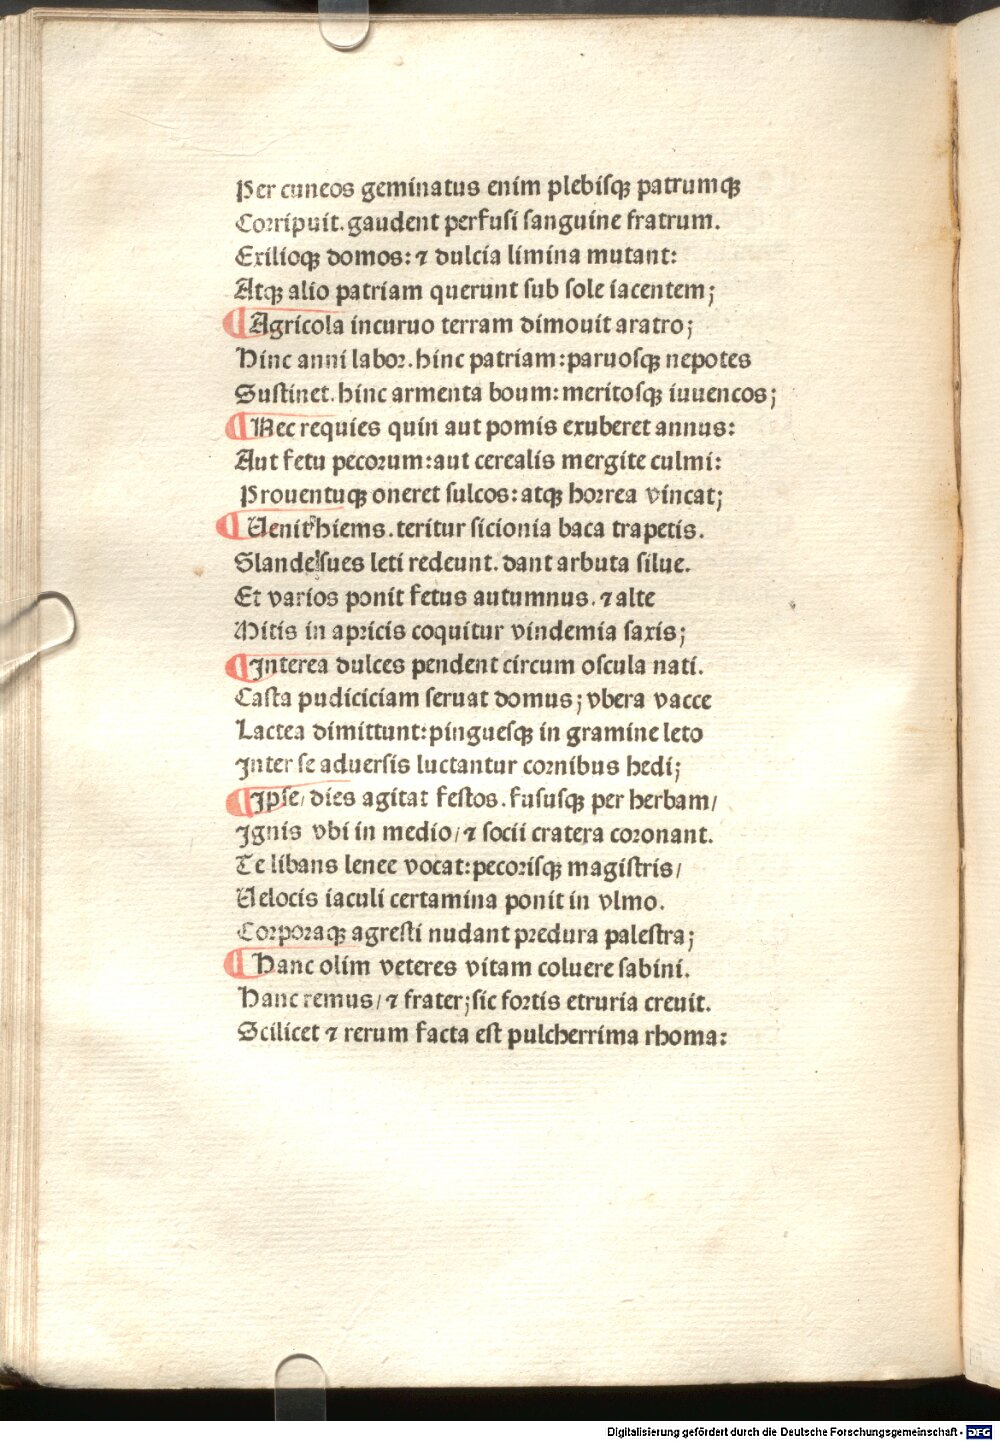 Per cuneos geminatus enim plebisqꝫ patrumqꝫ
Corripuit. gaudent perfusi sanguine fratrum.
Exilioqꝫ domos: ⁊ dulcia limina mutant:
Atqꝫ alio patriam querunt sub sole iacentem;
Agricola incuruo terram dimouit aratro;
Hinc anni labor. hinc patriam: paruosqꝫ nepotes
Sustinet. hinc armenta boum: meritosqꝫ iuuencos;
Nec requies quin aut pomis exuberet annus:
Aut fetu pecorum: aut cerealis mergite culmi:
Prouentuqꝫ oneret sulcos: atqꝫ horrea vincat;
Uenit hiems. teritur sicionia baca trapetis.
Glande sues leti redeunt. dant arbuta silue.
Et varios ponit fetus autumnus. ⁊ alte
Mitis in apricis coquitur vindemia saxis;
Interea dulces pendent circum oscula nati.
Casta pudiciciam seruat domus; vbera vacce
Lactea dimittunt: pinguesqꝫ in gramine leto
Inter se aduersis luctantur cornibus hedi;
Ipse/ dies agitat festos. fususqꝫ per herbam/
Ignis vbi in medio/ ⁊ socii cratera coronant.
Te libans lenee vocat: pecorisqꝫ magistris/
Uelocis iaculi certamina ponit in vlmo.
Corporaqꝫ agresti nudant predura palestra;
Hanc olim veteres vitam coluere sabini.
Hanc remus/ ⁊ frater; sic fortis etruria creuit.
Scilicet ⁊ rerum facta est pulcherrima rhoma:
Digitalisierung gefördert durch die Deutsche Forschungsgemeinschaft - DFG